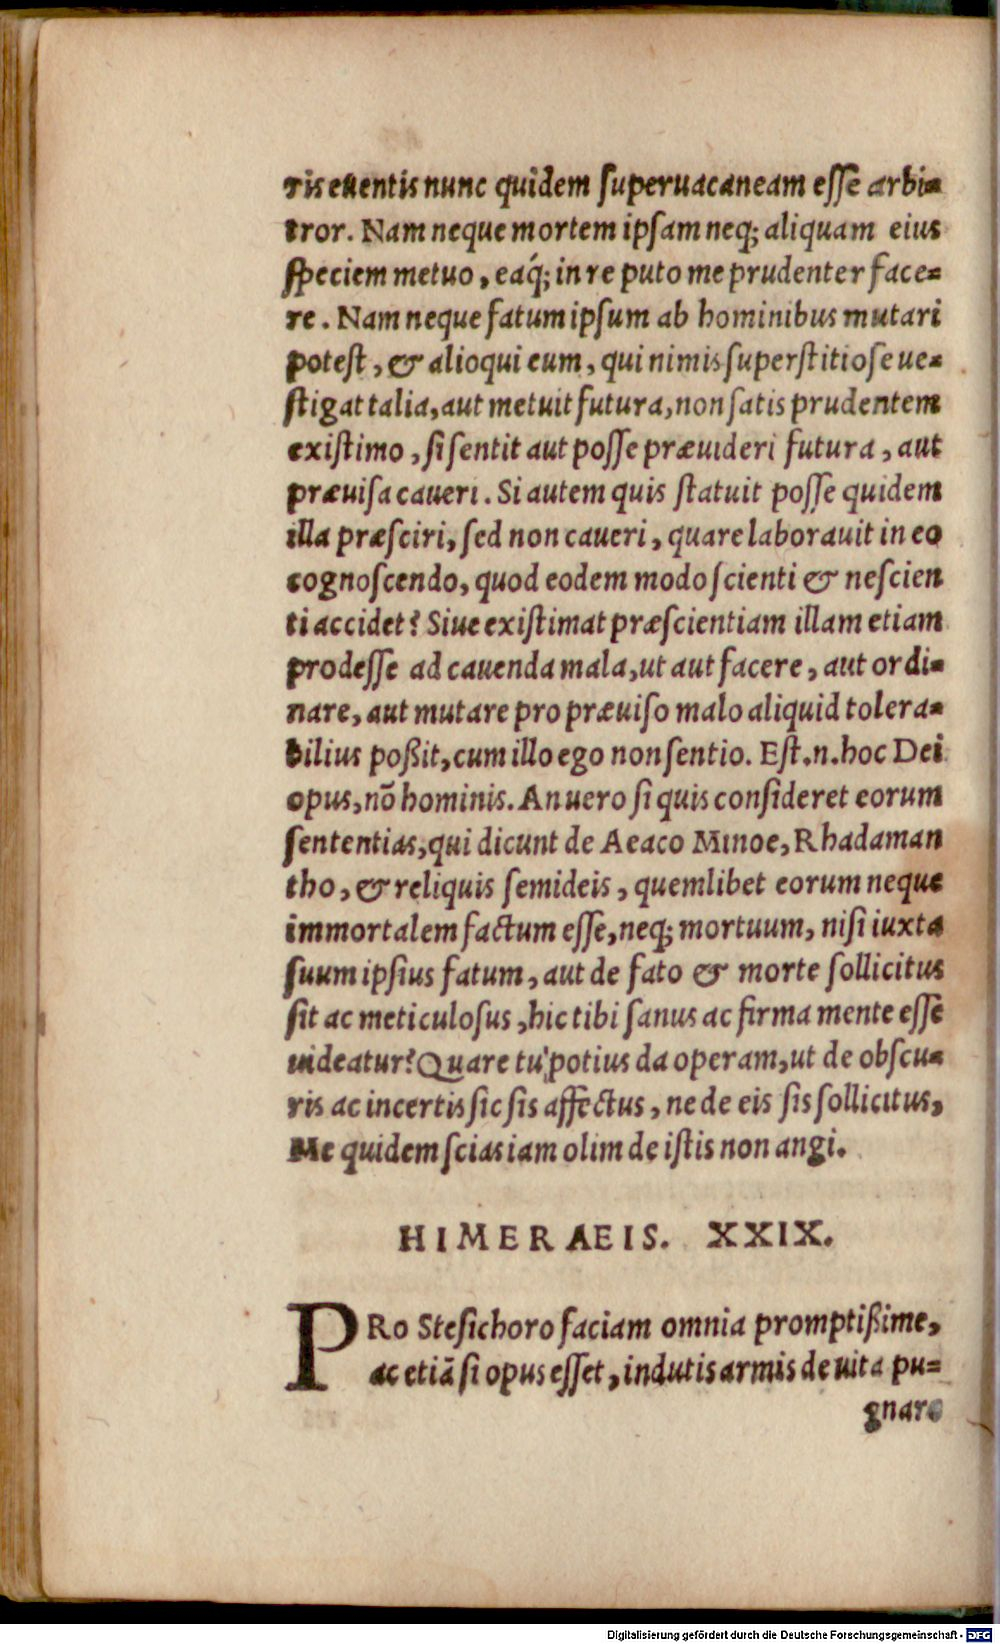 ris euentis nunc quidem superuacaneam esse arbi-
tror. Nam neque mortem ipsam neq; aliquam eius
speciem metuo, eaq́; in re puto me prudenter face-
re. Nam neque fatum ipsum ab hominibus mutari
potest, & alioqui eum, qui nimis superstitiose ue-
stigat talia, aut metuit futura, non satis prudentem
existimo, si sentit aut posse præuideri futura, aut
præuisa caueri. Si autem quis statuit posse quidem
illa præsciri, sed non caueri, quare laborauit in eo
cognoscendo, quod eodem modo scienti & nescien
ti accidet? Siue existimat præscientiam illam etiam
prodesse ad cauenda mala, ut aut facere, aut ordi-
nare, aut mutare pro præuiso malo aliquid tolera-
bilius poßit, cum illo ego non sentio. Est.n.hoc Dei
opus, nō hominis. An uero si quis consideret eorum
sententias, qui dicunt de Aeaco Minoe, Rhadaman
tho, & reliquis semideis, quemlibet eorum neque
immortalem factum esse, neq; mortuum, nisi iuxta
suum ipsius fatum, aut de fato & morte sollicitus
sit ac meticulosus, hic tibi sanus ac firma mente esse
uideatur? Quare tu potius da operam, ut de obscu-
ris ac incertis sic sis affectus, ne de eis sis sollicitus,
Me quidem scias iam olim de istis non angi.
HIMERAEIS. XXIX.
PRo Stesichoro faciam omnia promptißime,
ac etiā si opus esset, indutis armis de uita pu-
gnare
Digitalisierung gefördert durch die Deutsche Forschungsgemeinschaft - DFG